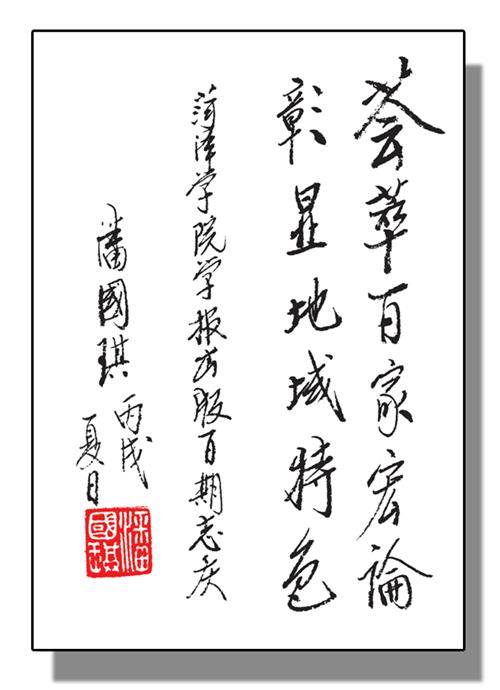 荟萃百家宏論
彰显地域特色
菏泽学院学报出版百期志庆
潘國琪
丙戌
夏日
潘國琪